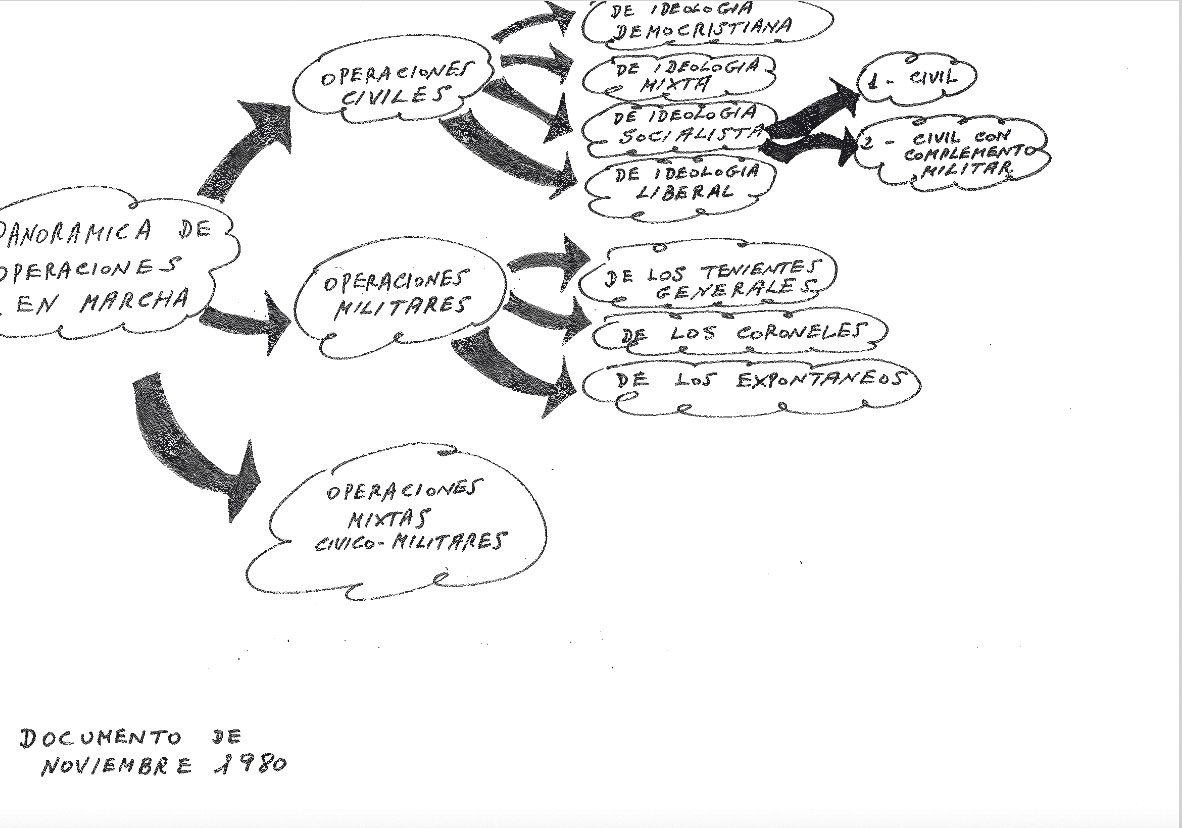 DE IDEOLOGIA
DEMOCRISTIANA
OPERACIONES
CIVILES
DE IDEOLOGIA
MIXTA
1 - CIVIL
DE IDEOLOGIA
SOCIALISTA
2 - CIVIL CON
COMPLEMENTO
MILITAR
DE IDEOLOGIA
LIBERAL
PANORAMICA DE
OPERACIONES
EN MARCHA
OPERACIONES
MILITARES
DE LOS TENIENTES
GENERALES
DE LOS CORONELES
DE LOS EXPONTANEOS
OPERACIONES
MIXTAS
CIVICO-MILITARES
DOCUMENTO DE
NOVIEMBRE 1980